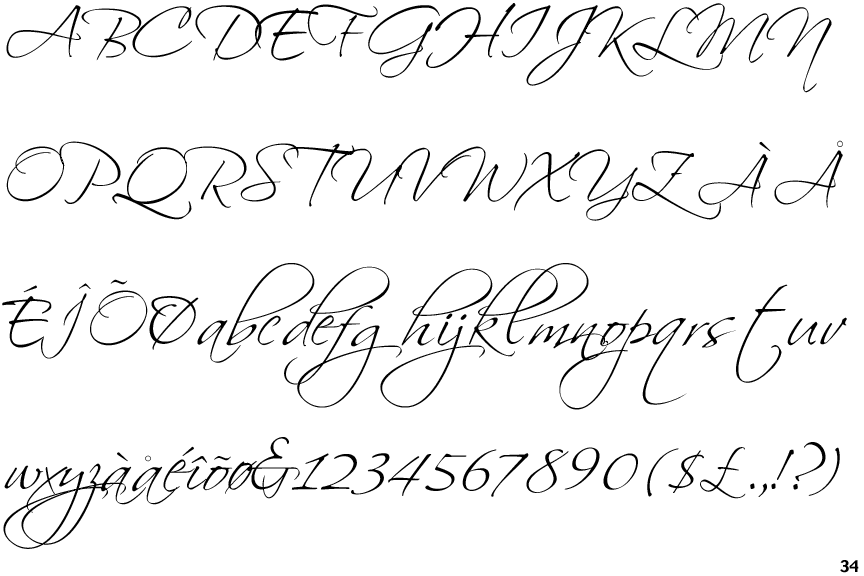 ABCDEFGHIJKLMN
OPQRSTUVWXYZÀÅ
ÉÎÕØabcdefghijklmnopqrstuv
wxyzàåéîõø&1234567890($£.,!?)
34